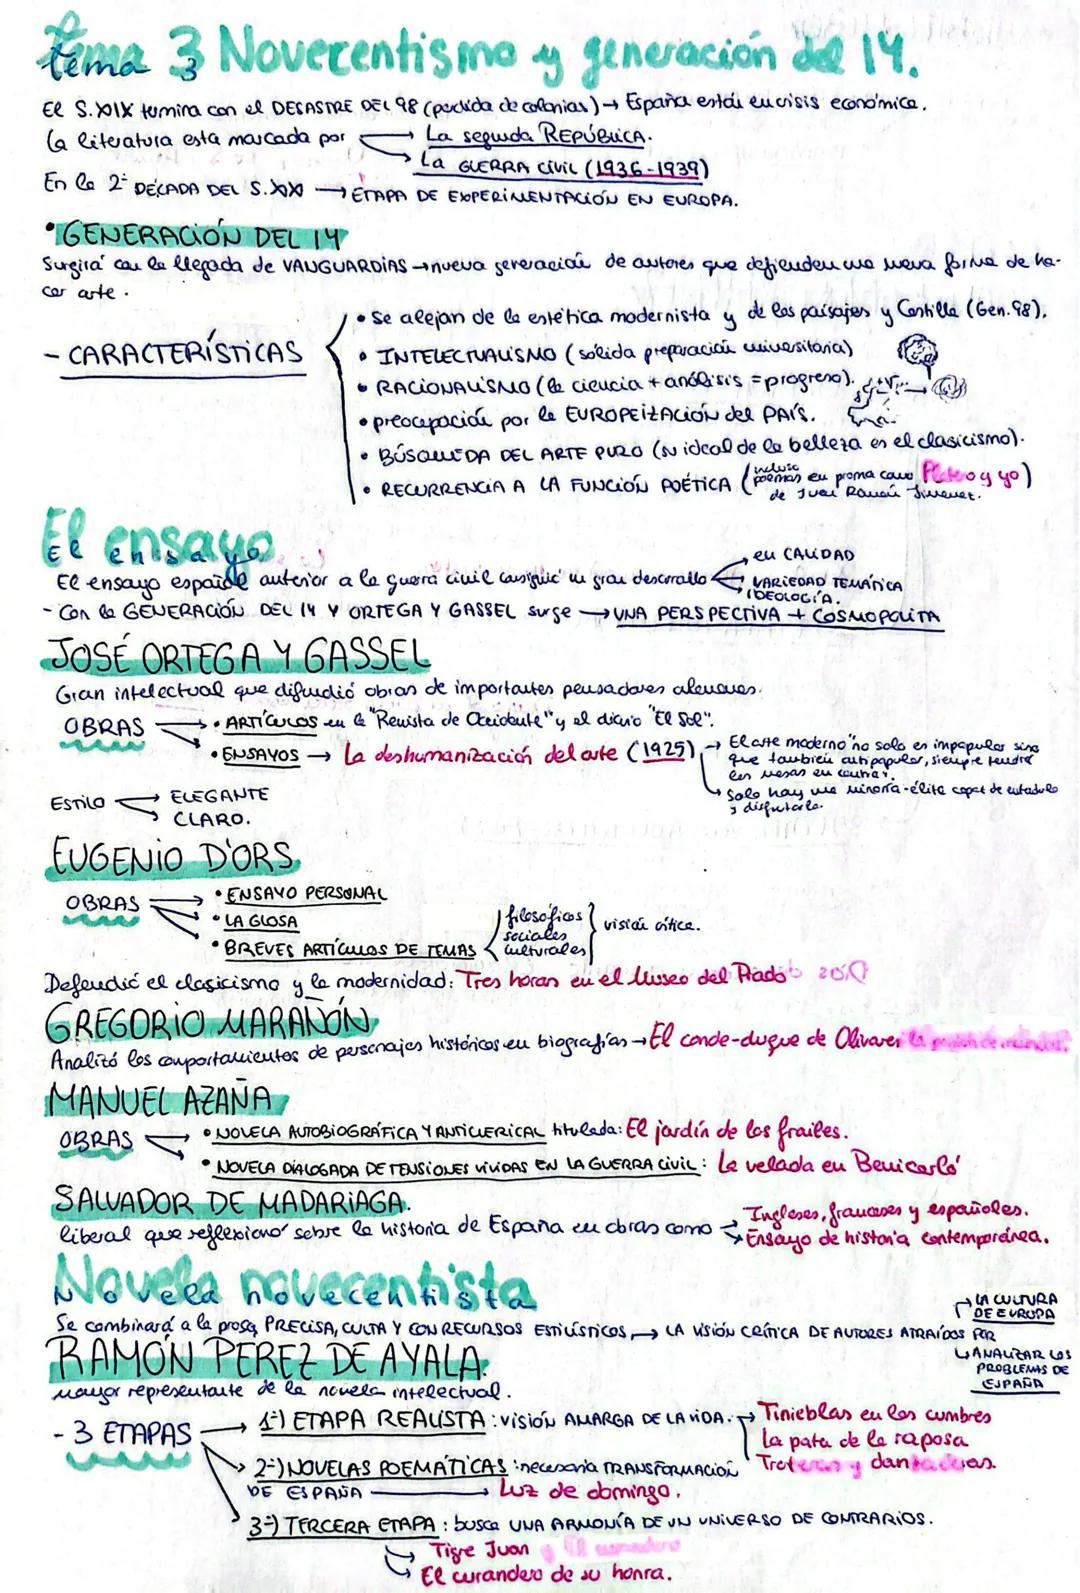 Tema 3 Novecentismo y generación del 14.
El S.XIX termina con el DESASTRE DEL 98 (perdida de colonias) → España está en crisis económica.
La literatura esta marcada por → La segunda REPÚBLICA.
→ La GUERRA CIVIL (1936-1939)
En la 2ª DÉCADA DEL S.XX → ETAPA DE EXPERIMENTACIÓN EN EUROPA.
• GENERACIÓN DEL 14
Surgirá con la llegada de VANGUARDIAS → nueva generación de autores que defienden una nueva forma de ha-
cer arte.
- CARACTERÍSTICAS
• Se alejan de la estética modernista y de los paisajes y Castilla (Gen. 98).
• INTELECTUALISMO (sólida preparación universitaria)
• RACIONALISMO (la ciencia + análisis = progreso).
• preocupación por la EUROPEIZACIÓN del PAÍS.
• BÚSQUEDA DEL ARTE PURO (su ideal de la belleza es el clasicismo).
• RECURRENCIA A LA FUNCIÓN POÉTICA (incluso poemas en prosa como Platero y yo)
de Juan Ramón Jimenez.
El ensayo
El ensayo español anterior a la guerra civil consiguió un gran desarrollo → en CALIDAD
→ VARIEDAD TEMÁTICA
→ IDEOLOGÍA.
- Con la GENERACIÓN DEL 14 Y ORTEGA Y GASSEL surge → UNA PERSPECTIVA + COSMOPOLITA
JOSÉ ORTEGA Y GASSEL
Gran intelectual que difundió obras de importantes pensadores alemanes.
OBRAS → • ARTÍCULOS en la "Revista de Occidente" y el diario "El Sol".
• ENSAYOS → La deshumanización del arte (1925) → El arte moderno "no solo es impopular sino
que tambien antipopular, siempre tendrá
las masas en contra".
→ Solo hay una minoría-élite capaz de entenderlo
y disfrutarla.
ESTILO → ELEGANTE
→ CLARO.
EUGENIO D'ORS
OBRAS → • ENSAYO PERSONAL
• LA GLOSA
• BREVES ARTÍCULOS DE TEMAS { filosóficos sociales culturales } visión crítica.
Defendió el clasicismo y la modernidad: Tres horas en el Museo del Prado
GREGORIO MARAÑÓN
Analizó los comportamientos de personajes históricos en biografías → El conde-duque de Olivares
MANUEL AZAÑA
OBRAS → • NOVELA AUTOBIOGRÁFICA Y ANTICLERICAL titulada: El jardín de los frailes.
• NOVELA DIALOGADA DE TENSIONES VIVIDAS EN LA GUERRA CIVIL: La velada en Benicarló
SALVADOR DE MADARIAGA.
liberal que reflexionó sobre la historia de España en obras como → Ingleses, franceses y españoles.
→ Ensayo de historia contemporánea.
Novela novecentista
Se combinará a la prosa PRECISA, CULTA Y CON RECURSOS ESTILÍSTICOS, → LA VISIÓN CRÍTICA DE AUTORES ATRAÍDOS POR
→ LA CULTURA
DE EUROPA
→ ANALIZAR LOS
PROBLEMAS DE
ESPAÑA
RAMÓN PEREZ DE AYALA.
mayor representante de la novela intelectual.
- 3 ETAPAS → 1ª) ETAPA REALISTA: visión AMARGA DE LA VIDA. → Tinieblas en las cumbres
La pata de la raposa
Troteras y danzaderas.
→ 2ª) NOVELAS POEMÁTICAS: necesaria TRANSFORMACIÓN
DE ESPAÑA → Luz de domingo.
→ 3ª) TERCERA ETAPA: busca UNA ARMONÍA DE UN UNIVERSO DE CONTRARIOS.
→ Tigre Juan
→ El curandero de su honra.